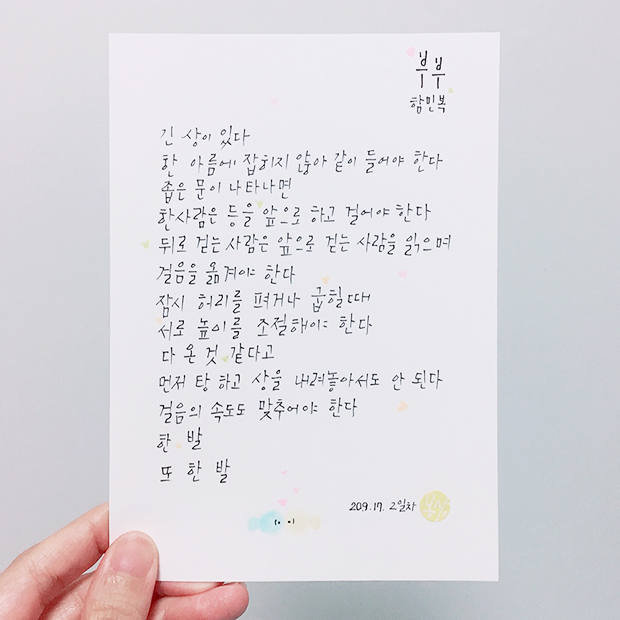 부부
함민복
긴 상이 있다
한 아름에 잡히지 않아 같이 들어야 한다
좁은 문이 나타나면
한사람은 등을 앞으로 하고 걸어야 한다
뒤로 걷는 사람은 앞으로 걷는 사람을 읽으며
걸음을 옮겨야 한다
잠시 허리를 펴거나 굽힐때
서로 높이를 조절해야 한다
다 온 것 같다고
먼저 탕 하고 상을 내려놓아서도 안 된다
걸음의 속도도 맞추어야 한다
한 발
또 한 발
209.17. 2일차